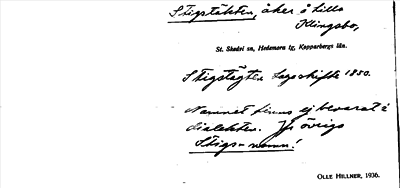 Stigstäkten, åker å Lilla
Klingsbo,
St. Skedvi sn, Hedemora tg, Kopparbergs län.
Stigstägten Lagaskifte 1850.
Namnet finns ej bevarat i
dialekten. Jfr övriga
Stigs-namn!
OLLE HILLNER, 1936.